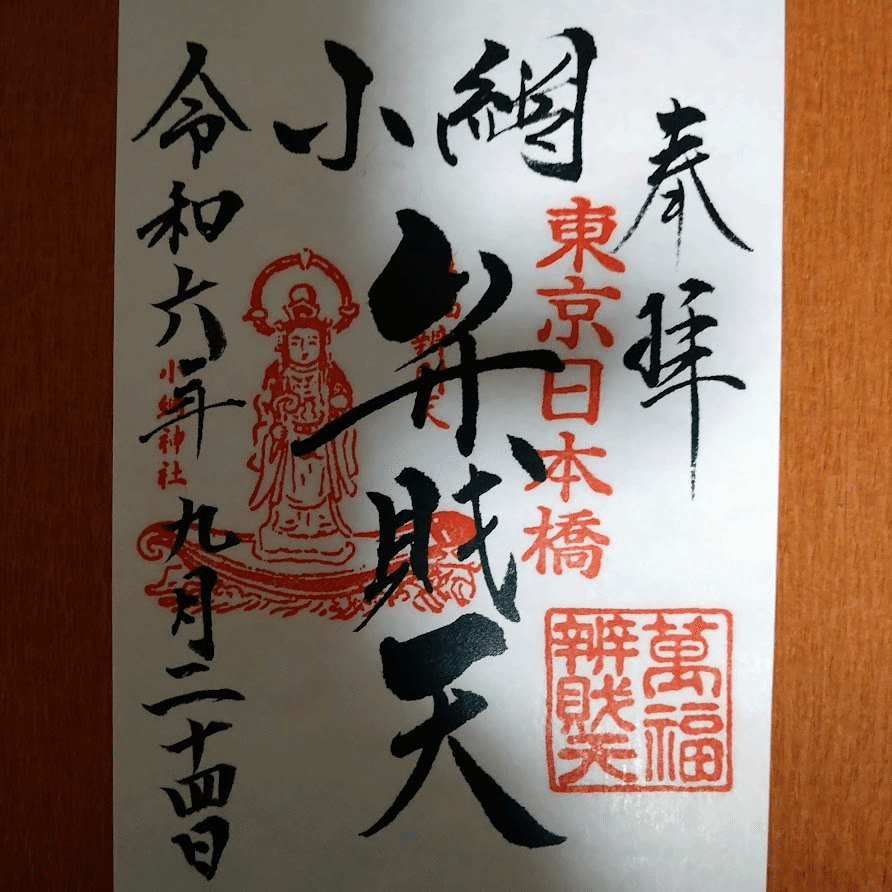 奉拝
東京日本橋
萬福
辨財天
小網
弁財天
小網神社
令和六年九月二十四日